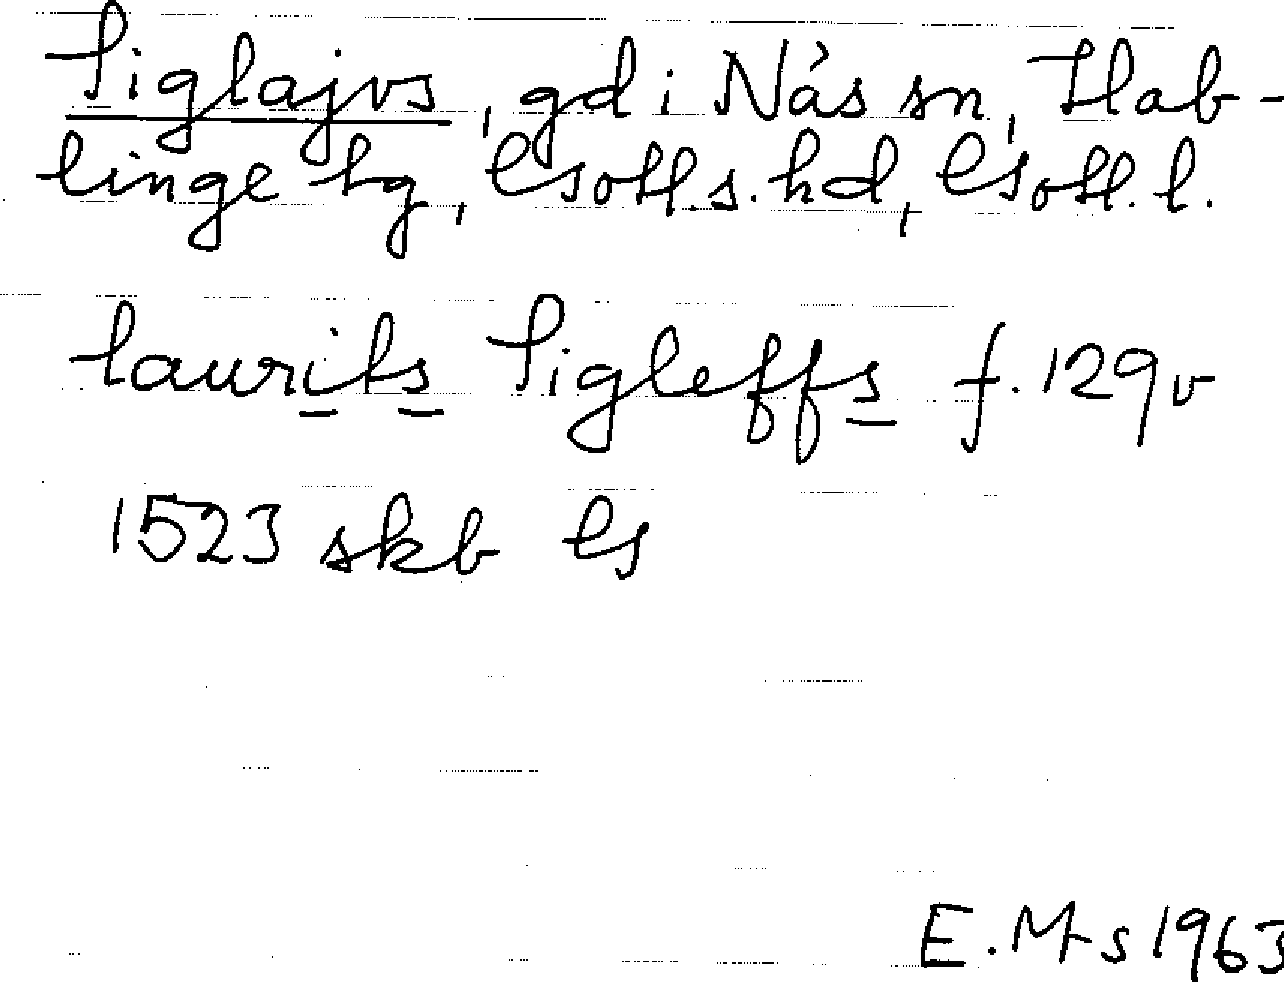 Siglajvs, gd i Näs sn, Hab-
linge tg, Gotl. s. hd, Gotl. l.
laurits Sigleffs f. 129v
1523 skb G
E. M-s 1963